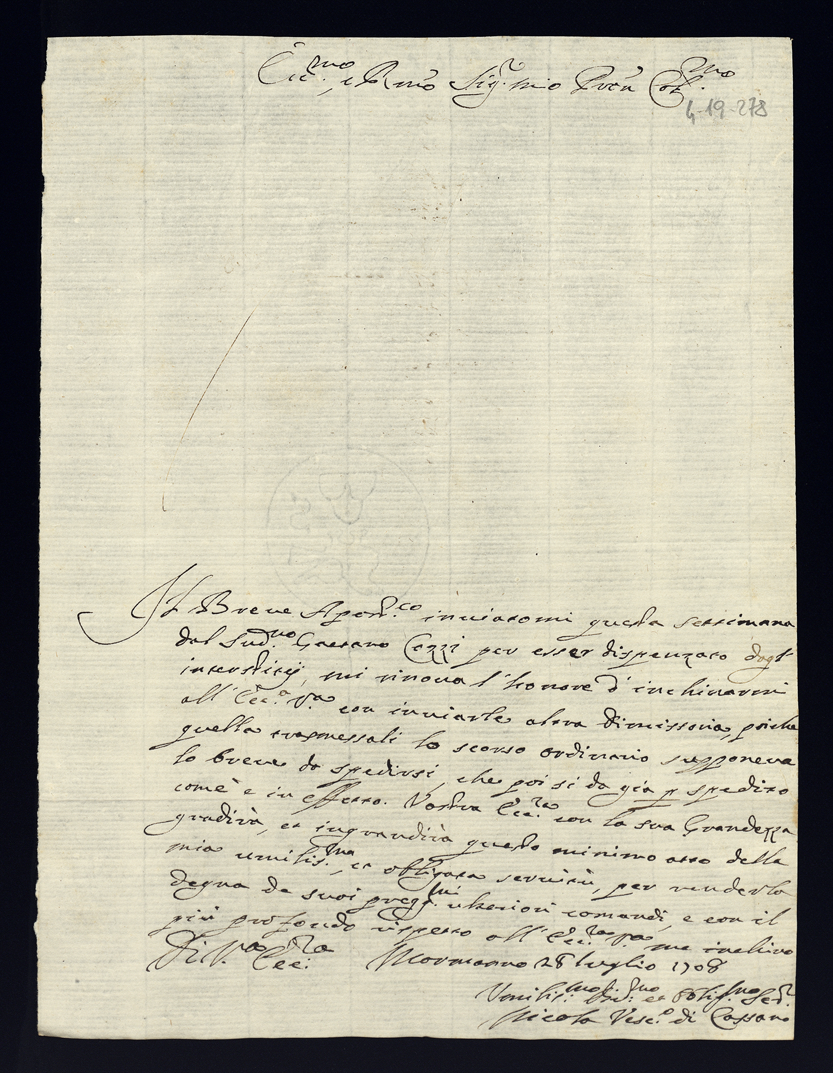 Ecc.mo, e R.mo Sig.r mio P̃ron Col.mo
4-19-278
Il Breve Apost.co inviatomi questa settimana
dal Sud.no Gaetano Cozzi per esser dispenzato dagl'
interstitij, mi rinova l'honore d'inchinarmi
all'Ecc.a V.a con inviarle altra dimissoria, poiche
quella trasmessali lo scorso ordinario supponeva
lo breve da spedirsi, che poi si da già p spedito
com'è in effetto. Vostra Ecc.za con la sua Grandezza
gradirà, et ingrandirà questo minimo atto della
mia umilis.ma, et obligata servitù, per renderla
degna de suoi preg.mi ulteriori comandi, e con il
più profondo rispetto all'Ecc.za V.a me inchino
Di V.a Ecc.za Mormanno 28 luglio 1708
Umilis.mo Div.mo et Oblig.mo Ser.r
Nicola Vesc.o di Cassano